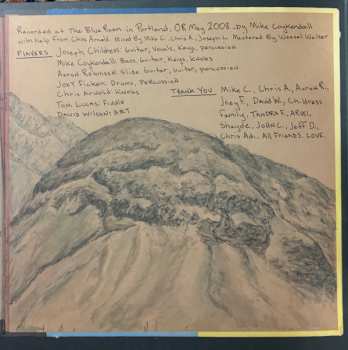 Recorded at The Blue Room in Portland, OR May 2008, by Mike Coykendall
with help from Chris Arnold. Mixed By Mike C., Chris A., Joseph C. Mastered By Weasel Walter
Players
Joseph Childress: Guitar, Vocals, Keys, percussion
Mike Coykendall: Bass, Guitar, Keys, Knobs
Aaron Robinson: Slide Guitar, Guitar, percussion
Joey Ficken: Drums, Percussion
Chris Arnold: Knobs
Tom Lucas: Fiddle
David Wilson: ART
THANK YOU
Mike C., Chris A., Aaron R.,
Joey F., David W., Childress
Family, TANDRA F.,
John C., Jeff D.,
Chris Adi. All Friends. LOVE.